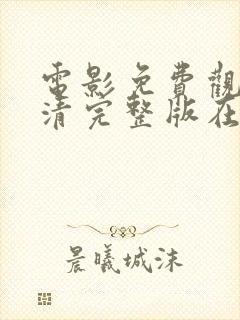 電影免費觀
清完整版在
晨曦城沫